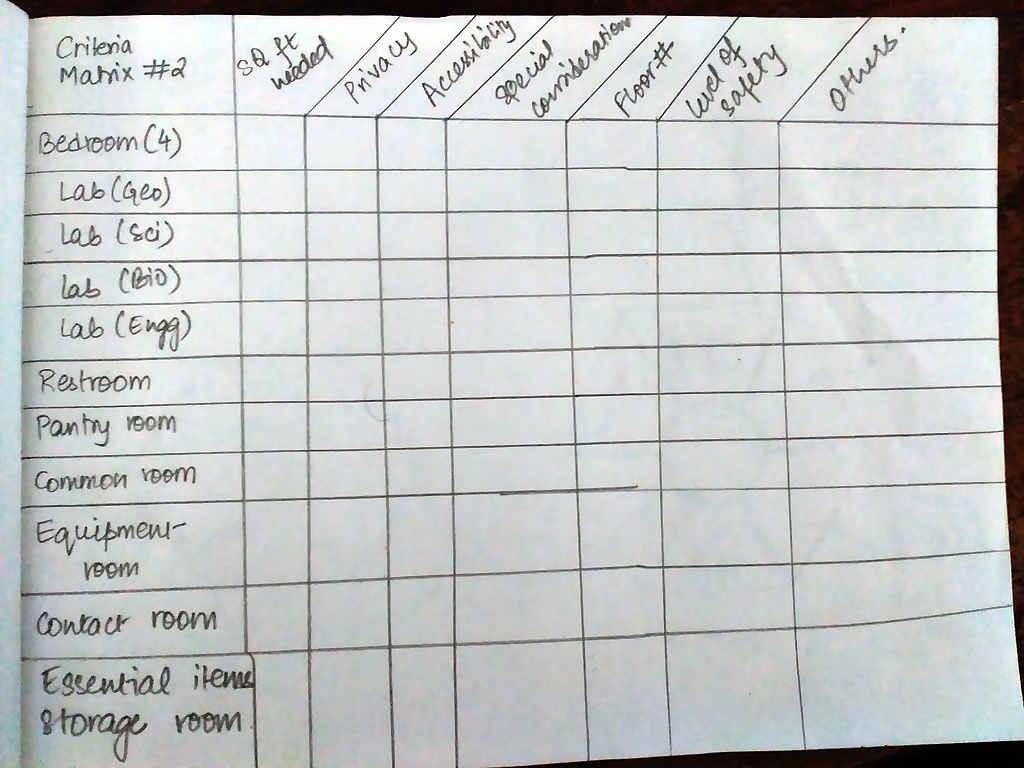 Criteria
Matrix #2
SQ ft
needed
Privacy
Accessibility
Special
consideration
Floor#
Level of
safety
Others.
Bedroom (4)
Lab (Geo)
Lab (Sci)
Lab (Bio)
Lab (Engg)
Restroom
Pantry room
Common room
Equipment
room
Contact room
Essential items
storage room.